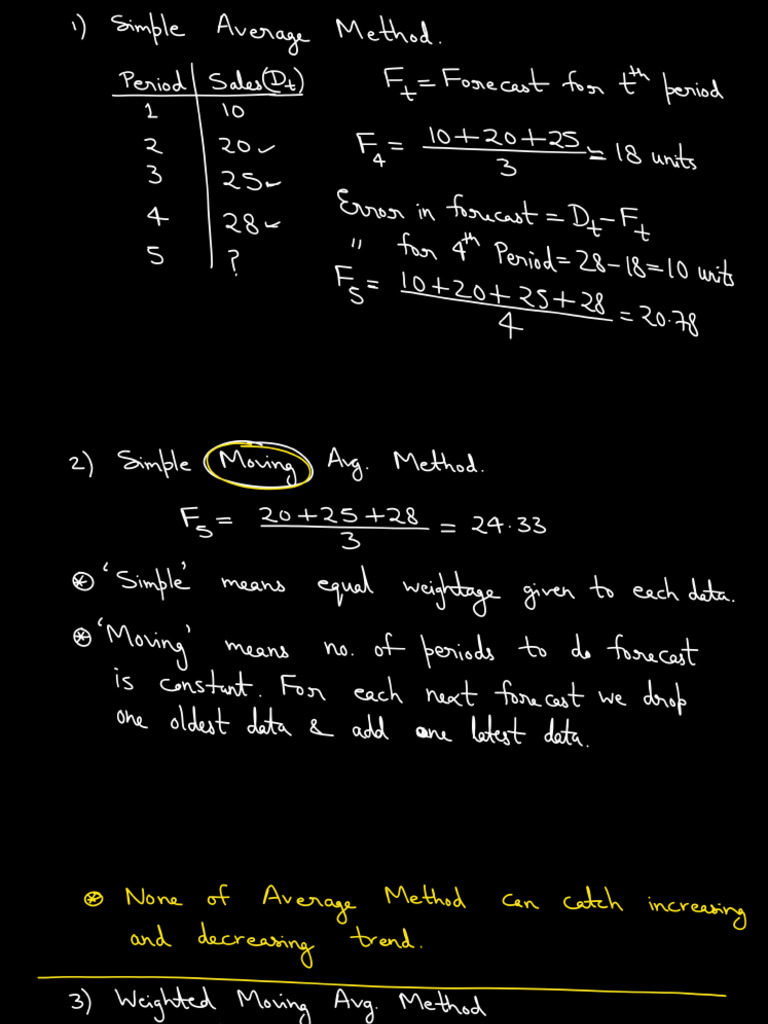 1) Simple Average Method.
Period | Sales(Dt)
1 | 10
2 | 20 ✓
3 | 25 ✓
4 | 28 ✓
5 | ?
Ft = Forecast for tth period
F4 = (10+20+25)/3 = 18 units
Error in forecast = Dt-Ft
" for 4th Period = 28-18=10 units
F5 = (10+20+25+28)/4 = 20.78
2) Simple Moving Avg. Method.
F5 = (20+25+28)/3 = 24.33
⊛ 'Simple' means equal weightage given to each data.
⊛ 'Moving' means no. of periods to do forecast
is constant. For each next forecast we drop
one oldest data & add one latest data.
⊛ None of Average Method can catch increasing
and decreasing trend.
3) Weighted Moving Avg. Method